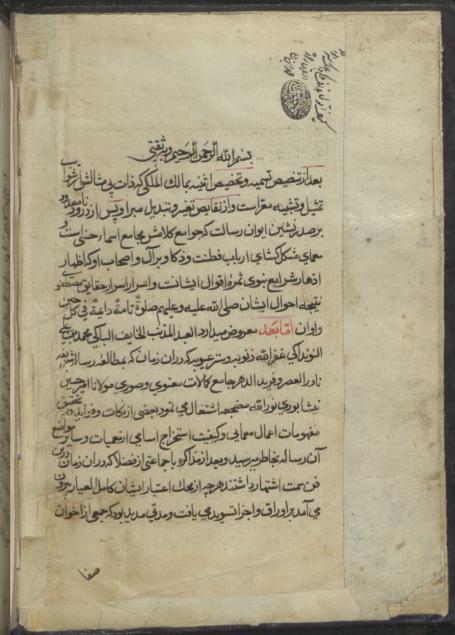 بسم الله الرحمن الرحیم وبه ثقتی
بعد از تنصیص تسمیه و تخصیص اثنیه بمالک الملکی که ذات بی مثالش از شوایب
تمثیل و تشبیه معراست و از نقایص تغیر و تبدیل مبرا و پس از درود نامعدود
بر صدرنشین ایوان رسالت که جوامع کلامش مجامع اسمار حسنی است و
معمای شکل کشای ارباب فطنت و ذکا و بر آل و اصحاب او که اظهار
ازهار شرایع نبوی ثمره اقوال ایشانست و اسرار اسرار حقایق مصطفوی
نتیجه احوال ایشان صلی الله علیه و علیهم صلوة تامة دائمة فی کل حین
و اوان اما بعد معروض میدارد العبد المذنب الخایف الباکی محمد بن علی
النونداکی غفر الله ذنوبه و ستر عیوبه که دران زمان که بمطالعه رساله شریفه
نادر العصر و فرید الدهر جامع کمالات معنوی و صوری مولانا امیر حسین
نیشابوری نور الله مضجعه اشتغال می نمود بعضی از نکات و فواید در تحقیق
مفهومات اعمال معمایی و کیفیت استخراج اسامی از معمیات و سایر مواضع
آن رساله بخاطر میرسید و بعد از مذاکره با جماعتی از فضلا که دران زمان درین
فن سمت اشتهار داشتند هرچه از محک اعتبار ایشان کامل العیار بیرون
می آمد بر اوراق و اجزا تسوید می یافت و مدتی مدید بود که جمعی از اخوان
صفا